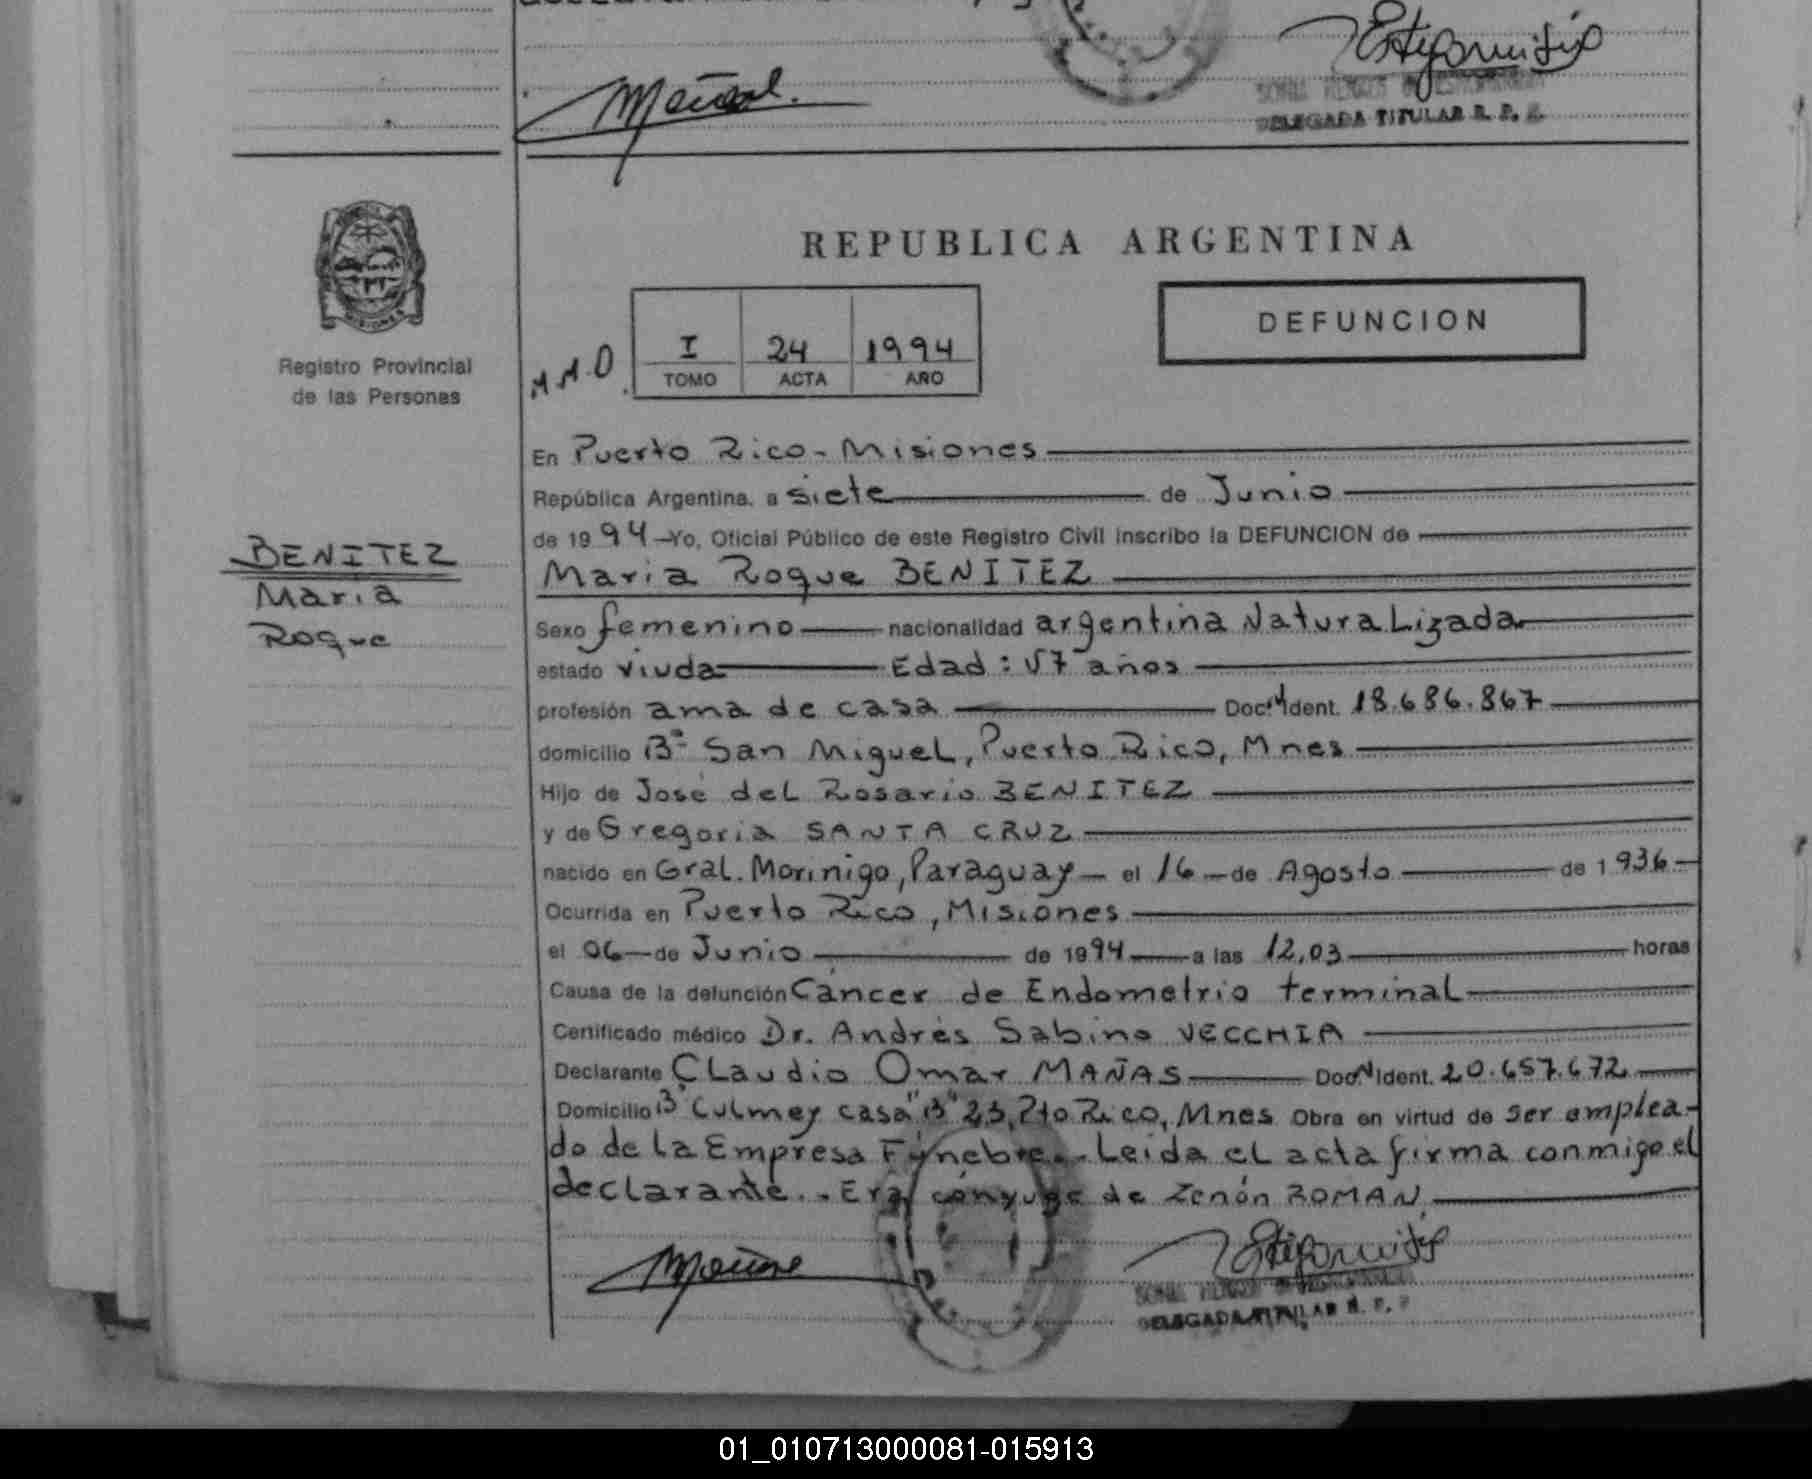 Estigarribia
DELEGADA TITULAR R. P. P.
REPUBLICA ARGENTINA
DEFUNCION
I 24 1994
TOMO ACTA AÑO
MISIONES
Registro Provincial
de las Personas
En Puerto Rico - Misiones
República Argentina, a siete de Junio
de 1994 - Yo, Oficial Público de este Registro Civil inscribo la DEFUNCION de
BENITEZ
Maria
Roque
Maria Roque BENITEZ
Sexo femenino nacionalidad argentina Naturalizada
estado viuda Edad: 57 años
profesión ama de casa Doc. Ident. 18.686.867
domicilio Bº San Miguel, Puerto Rico, Mnes
Hijo de José del Rosario BENITEZ
y de Gregoria SANTA CRUZ
nacido en Gral. Morinigo, Paraguay - el 16 - de Agosto de 1936 -
Ocurrida en Puerto Rico, Misiones
el 06 - de Junio de 1994 a las 12,03 horas
Causa de la defunción Cáncer de Endometrio terminal
Certificado médico Dr. Andrés Sabino VECCHIA
Declarante Claudio Omar MAÑAS Doc. Ident. 20.657.672
Domicilio Bº Culmey casa "B" 23, Pto Rico, Mnes Obra en virtud de ser emplea-
do de la Empresa Fúnebre.- Leida el acta firma conmigo el
declarante.- Era cónyuge de Zenón ROMAN
Estigarribia
DELEGADA TITULAR R. P. P.
01_010713000081-015913